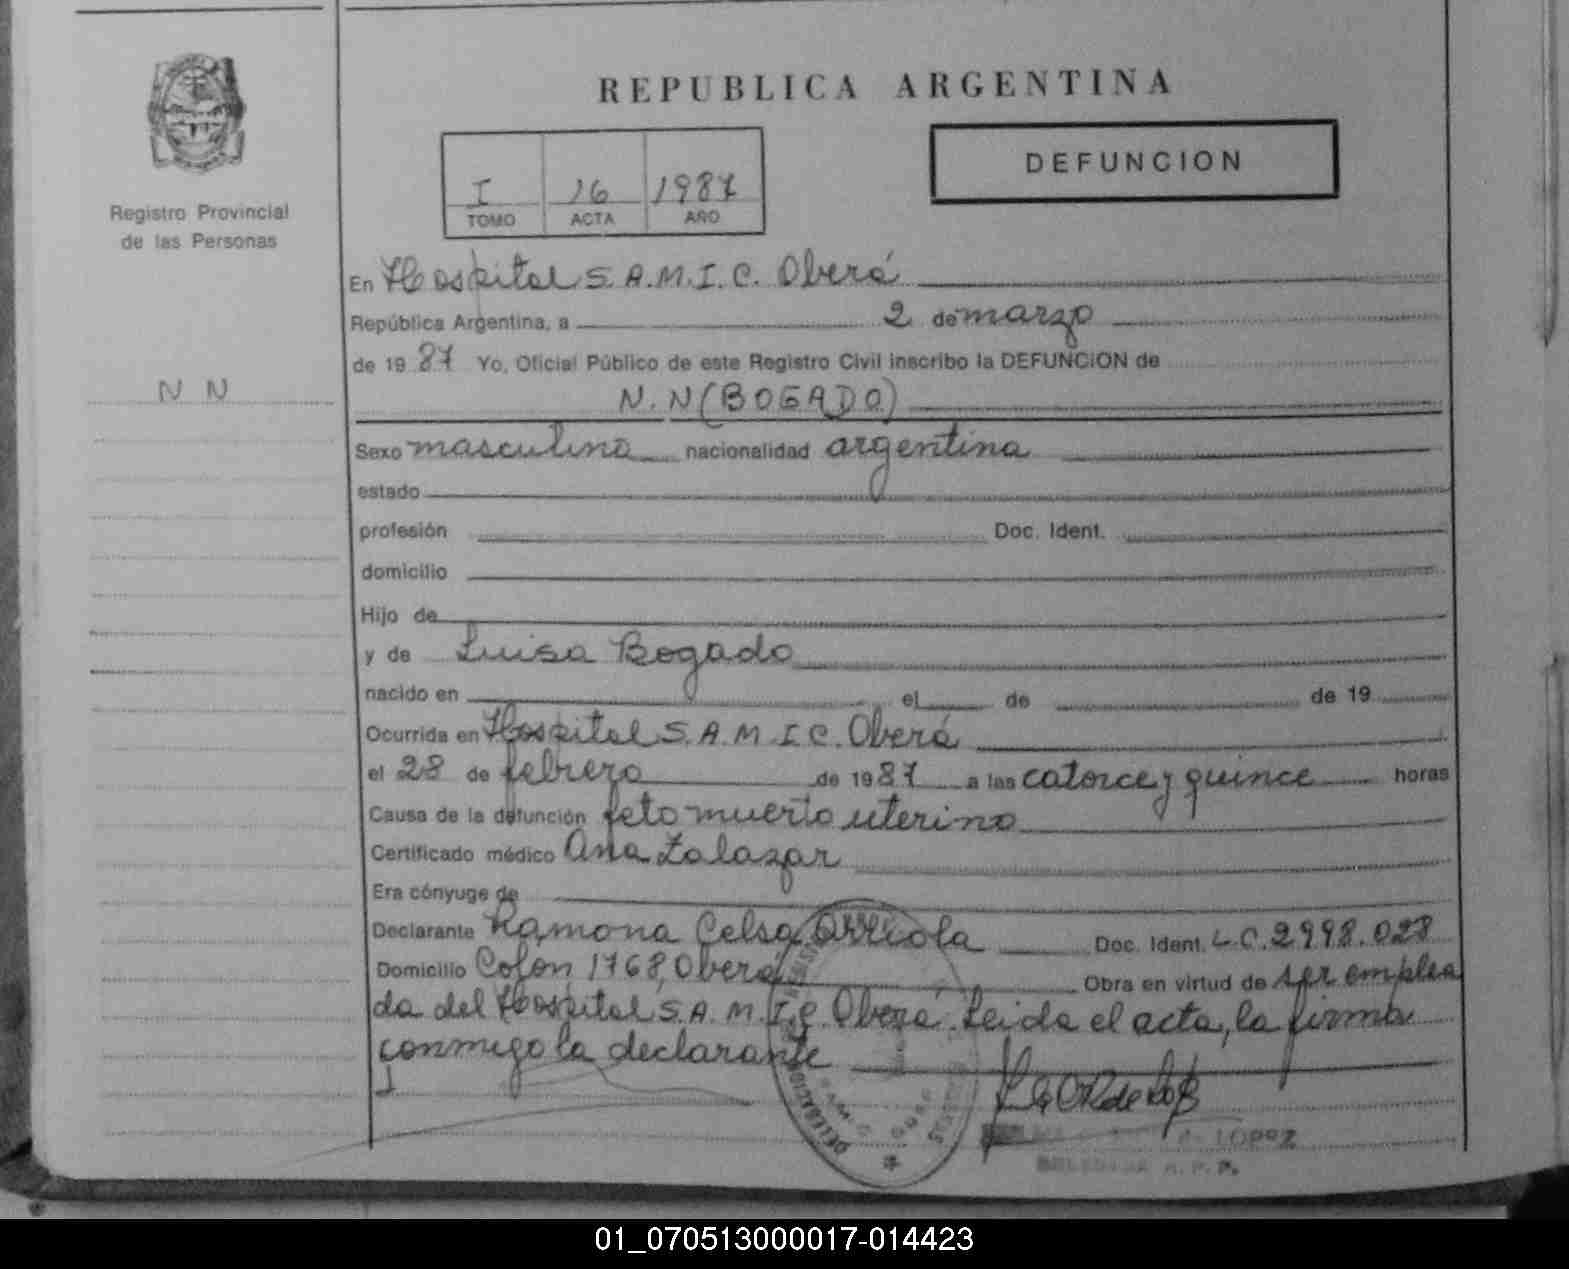 REPUBLICA ARGENTINA
DEFUNCION
I 16 1987
TOMO ACTA AÑO
Registro Provincial
de las Personas
N N
En Hospital S.A.M.I.C. Oberá
República Argentina, a 2 de marzo
de 1987 Yo, Oficial Público de este Registro Civil inscribo la DEFUNCION de
N.N (BOGADO)
Sexo masculino nacionalidad argentina
estado
profesión Doc. Ident.
domicilio
Hijo de
y de Luisa Bogado
nacido en el de de 19
Ocurrida en Hospital S.A.M.I.C. Oberá
el 28 de febrero de 1987 a las catorce y quince horas
Causa de la defunción feto muerto uterino
Certificado médico Ana Zalazar
Era cónyuge de
Declarante Ramona Celsa Arriola Doc. Ident. L.C. 2998.028
Domicilio Colon 1768, Oberá Obra en virtud de ser emplea
da del Hospital S.A.M.I.C. Oberá. Leida el acta, la firma
conmigo la declarante
LOPEZ
01_070513000017-014423